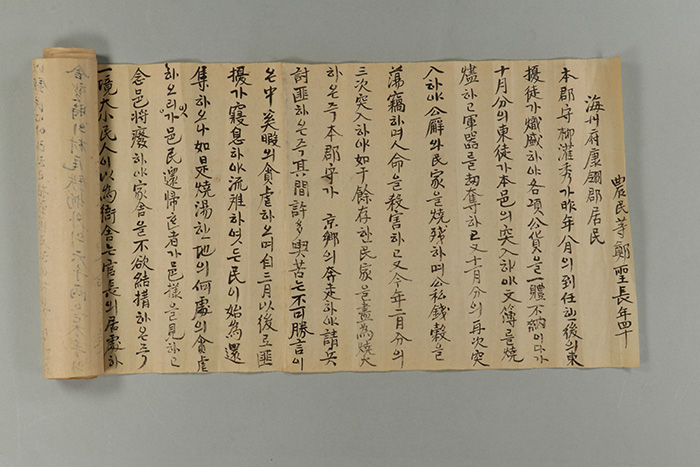 農民等鄭聖長年四十
海州府康翎郡居民
本郡守柳灌秀가昨年八月의到任한後의東
擾徒가熾盛하야各項公貨을一軆不納이다가
十月分의東徒가本邑의突入하야文簿를燒
燼하고軍器를刼奪하고又十一月分의再次突
入하야公廨와民家을燒殘하며公私錢穀을
蕩竊하며人命을殺害하고又今年二月分의
三次突入하야如干餘存한民家을盡為燒火
하온즉本郡守가 京鄉의奔走하야請兵
討匪하온즉其間許多苦는不可勝言이
온中奚暇의貪虐하오며自三月以後로匪
擾가寢息하야流離하엿든民이始為還
集하오나如是燒湯한地의何處의貪虐
하오리가邑民還歸한者가邑樣을見하고
念邑將廢하야家舍을不欲結搆하온즉
一境大小民人이以為衙舍는官長의居處하